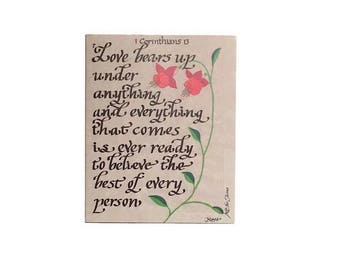 1 Corinthians 13
Love bears up
under
anything
and everything
that comes
is ever ready
to believe the
best of every
person